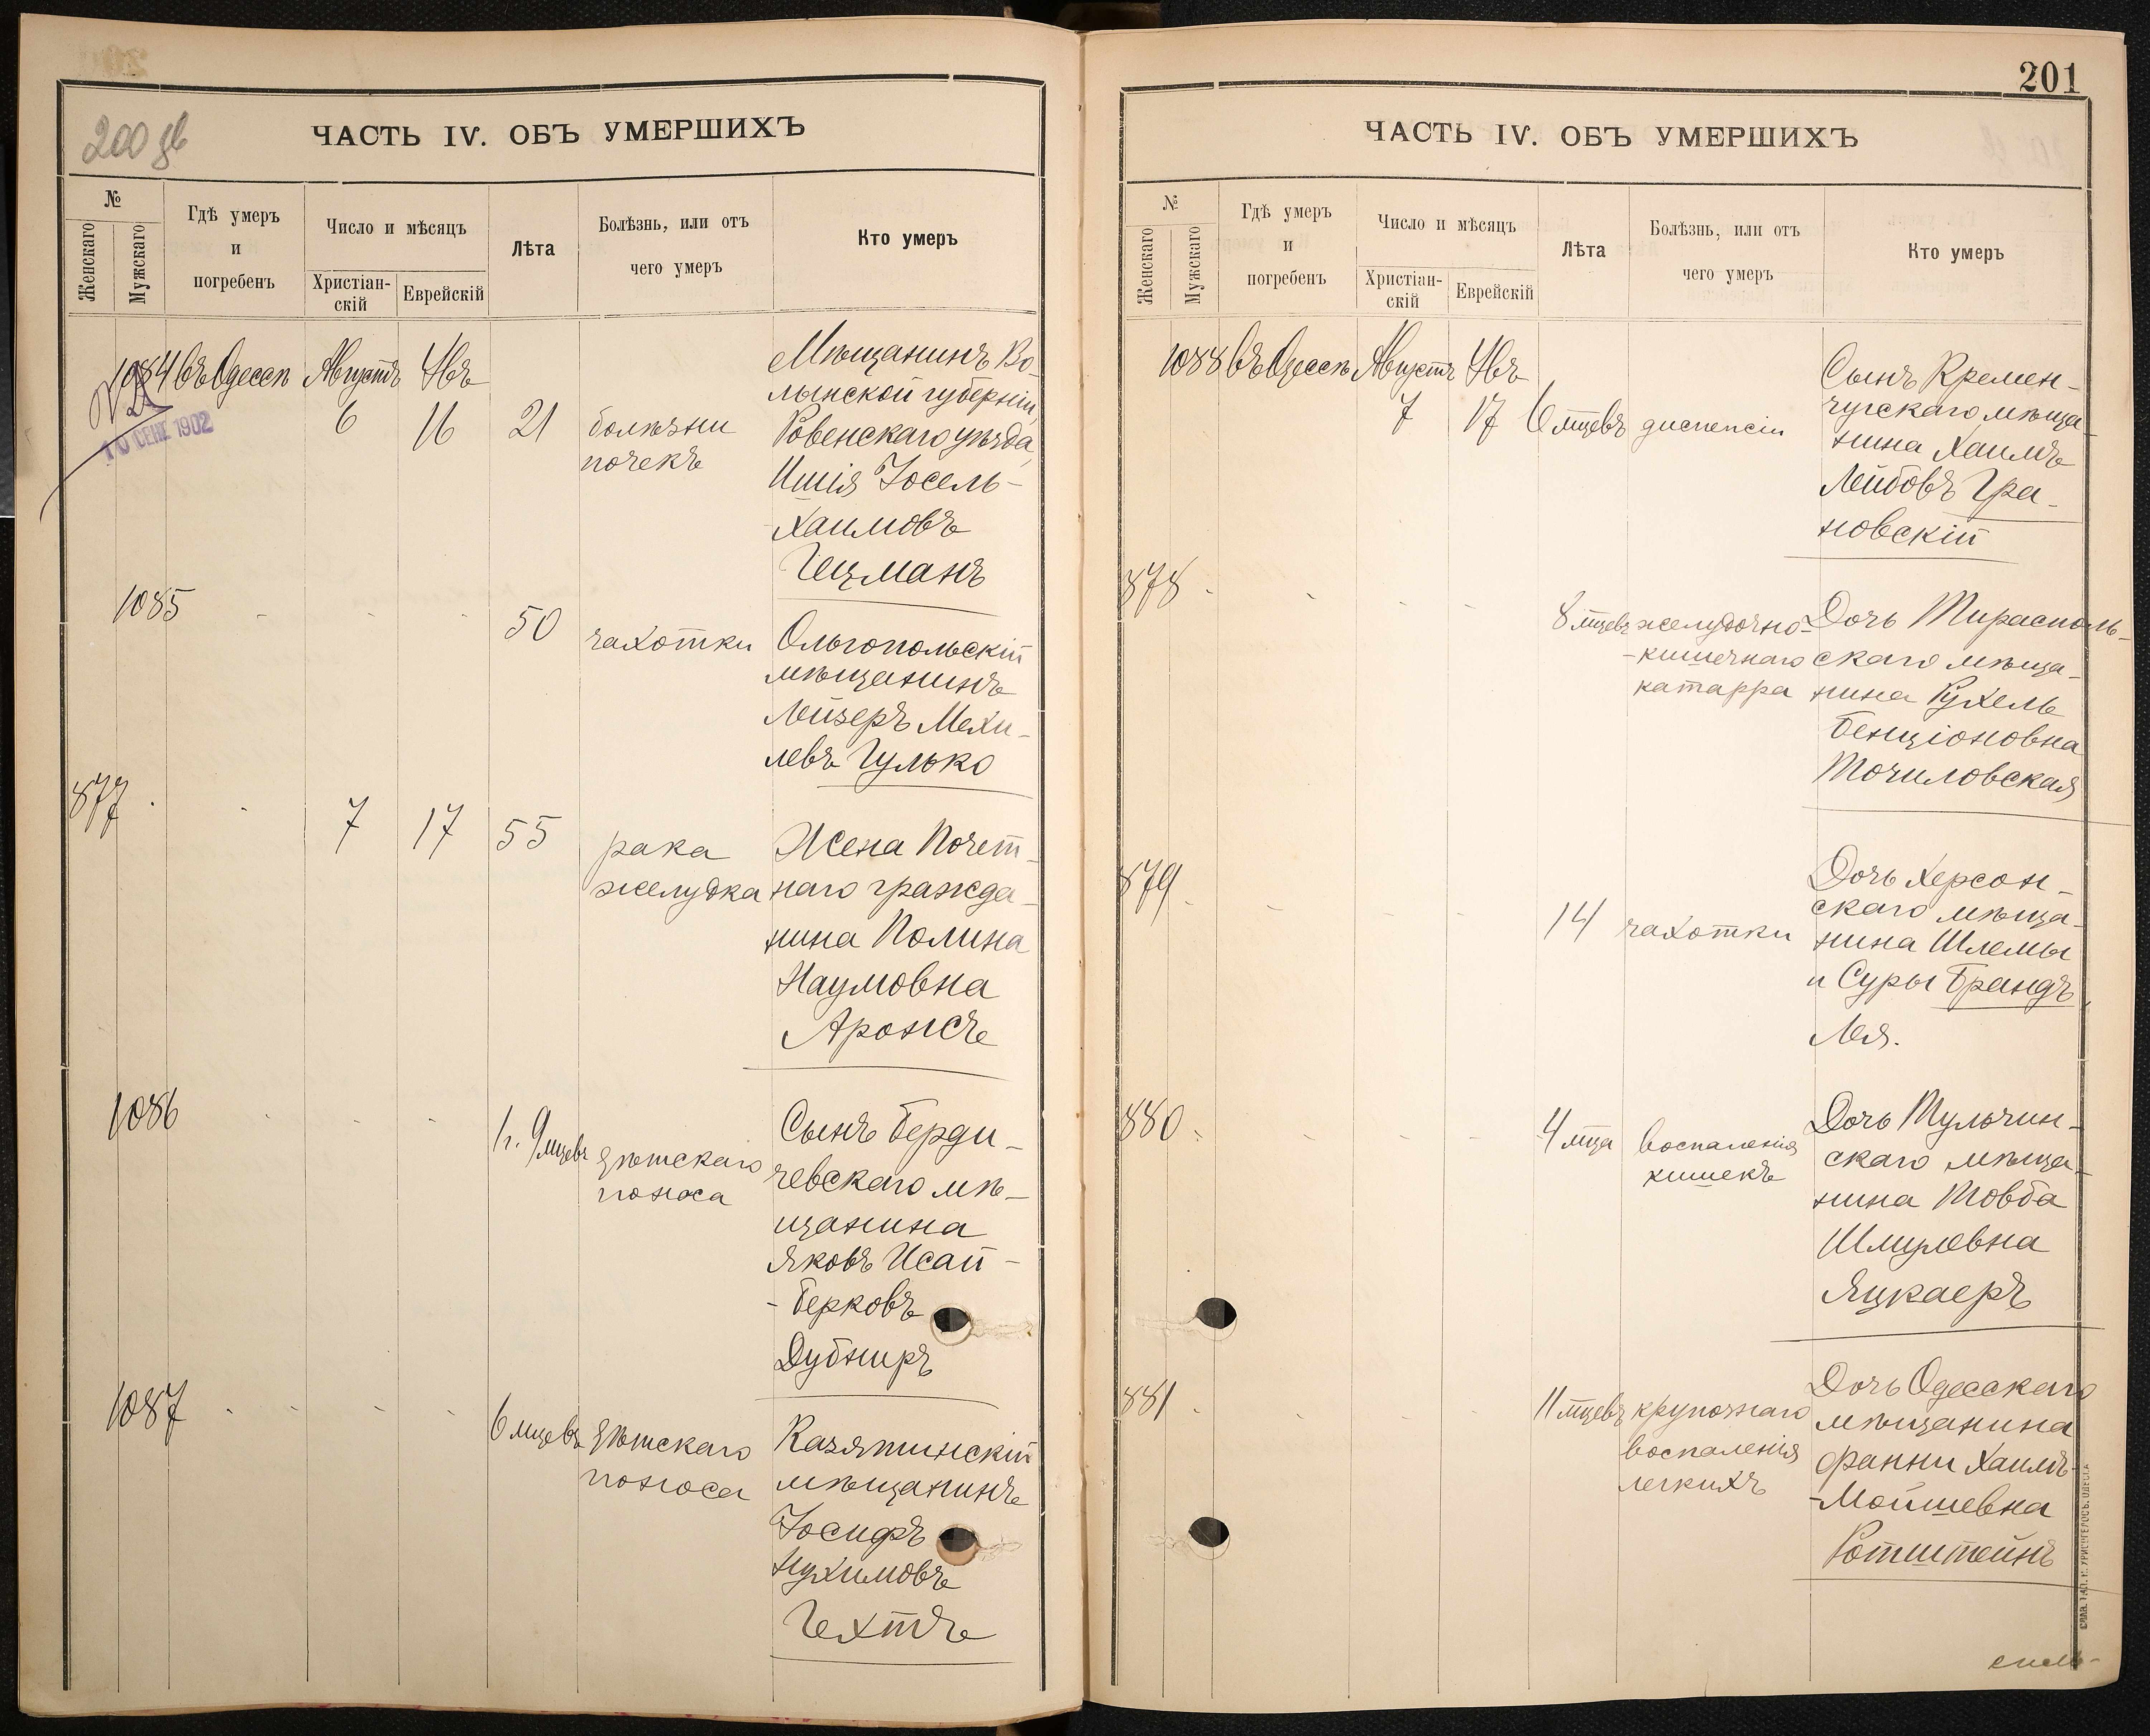 200 об
ЧАСТЬ IV. ОБЪ УМЕРШИХЪ
№
Женскаго
Мужскаго
Гдѣ умеръ
и
погребенъ
Число и мѣсяцъ
Христіан-
скій
Еврейскій
Лѣта
Болѣзнь, или отъ
чего умеръ
Кто умеръ
1084 въ Одессѣ Августъ Увъ
10 СЕН 1902
6 16 21 болѣзни
почекъ
Мѣщанинъ Во-
лынской губерніи,
Ровенскаго уѣзда,
Ишія Іосель-
-Хаимовъ
Гецманъ
1085
50 чахотки
Ольгопольскій
мѣщанинъ
Лейзеръ Мехи-
левъ Гулько
877
7 17 55 рака
желудка
Жена Почет-
наго гражда-
нина Полина
Наумовна
Аронсъ
1086
1 г. 9 мцевъ дѣтскаго
поноса
Сынъ Берди-
чевскаго мѣ-
щанина
Яковъ Исай-
-Берковъ
Дубниръ
1087
6 мцевъ дѣтскаго
поноса
Казятинскій
мѣщанинъ
Іосифъ
Нухимовъ
Гехтъ
201
ЧАСТЬ IV. ОБЪ УМЕРШИХЪ
№
Женскаго
Мужскаго
Гдѣ умеръ
и
погребенъ
Число и мѣсяцъ
Христіан-
скій
Еврейскій
Лѣта
Болѣзнь, или отъ
чего умеръ
Кто умеръ
1088 въ Одессѣ Августъ Увъ
7 17 6 мцевъ диспепсіи
Сынъ Кремен-
чугскаго мѣща-
нина Хаимъ
Лейбовъ Гра-
новскій
878
8 мцевъ желудочно-
-кишечнаго
катарра
Дочь Тирасполь-
скаго мѣща-
нина Рухель
Бенціоновна
Точиловская
879
14 чахотки
Дочь Херсон-
скаго мѣща-
нина Шлемы
и Суры Брандъ,
Лея.
880
4 мца воспаленія
кишекъ
Дочь Тульчин-
скаго мѣща-
нина Товба
Шмулевна
Яцкаеръ
881
11 мцевъ крупознаго
воспаленія
легкихъ
Дочь Одесскаго
мѣщанина
Фанни Хаимъ-
-Мойшевна
Ротштейнъ